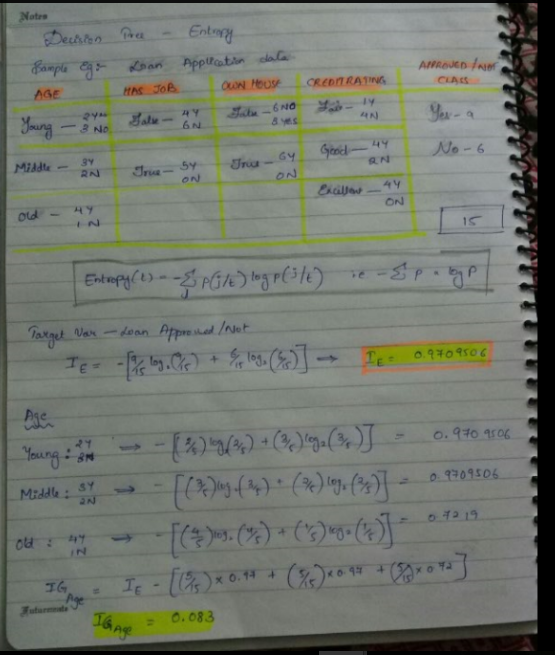 Notes
Decision Tree - Entropy
Sample Eg:- Loan Application data
AGE HAS JOB OWN HOUSE CREDIT RATING APPROVED/NOT CLASS
Young — 2Yes 3 No False — 4Y 6N False — 6 NO 3 Yes — 1Y 4N Yes - 9
Middle — 3Y 2N True — 5Y 0N True — 6Y 0N Good — 4Y 2N No - 6
Excellent — 4Y 0N
Old — 4Y 1N 15
Entropy(t) = -∑j P(j/t) log P(j/t) i.e -∑ P * log P
Target Var - Loan Approved/Not
IE = -[9/15 log2(9/15) + 6/15 log2(6/15)] → IE = 0.9709506
Age
Young : 2Y 3N → -[(2/5) log2(2/5) + (3/5) log2(3/5)] = 0.9709506
Middle : 3Y 2N → -[(3/5) log2(3/5) + (2/5) log2(2/5)] = 0.9709506
Old : 4Y 1N → -[(4/5) log2(4/5) + (1/5) log2(1/5)] = 0.7219
IG Age = IE - [(5/15) x 0.97 + (5/15) x 0.97 + (5/15) x 0.72]
IG Age = 0.083